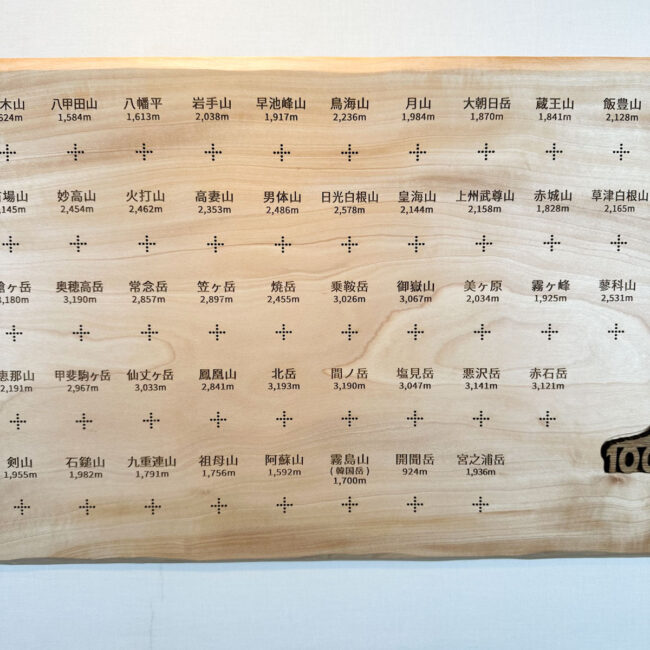 木山 八甲田山 八幡平 岩手山 早池峰山 鳥海山 月山 大朝日岳 蔵王山 飯豊山
624m 1,584m 1,613m 2,038m 1,917m 2,236m 1,984m 1,870m 1,841m 2,128m
場山 妙高山 火打山 高妻山 男体山 日光白根山 皇海山 上州武尊山 赤城山 草津白根山
2,145m 2,454m 2,462m 2,353m 2,486m 2,578m 2,144m 2,158m 1,828m 2,165m
槍ヶ岳 奥穂高岳 常念岳 笠ヶ岳 焼岳 乗鞍岳 御嶽山 美ヶ原 霧ヶ峰 蓼科山
3,180m 3,190m 2,857m 2,897m 2,455m 3,026m 3,067m 2,034m 1,925m 2,531m
恵那山 甲斐駒ヶ岳 仙丈ヶ岳 鳳凰山 北岳 間ノ岳 塩見岳 悪沢岳 赤石岳
2,191m 2,967m 3,033m 2,841m 3,193m 3,190m 3,047m 3,141m 3,121m
剣山 石鎚山 九重連山 祖母山 阿蘇山 霧島山 開聞岳 宮之浦岳
1,955m 1,982m 1,791m 1,756m 1,592m (韓国岳) 924m 1,936m
1,700m
100